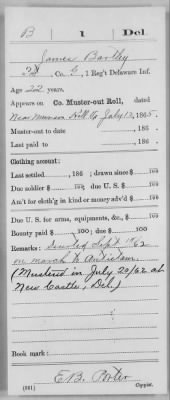 B | 1 | Del.
James Bartley
Co. G, 1 Reg't Delaware Inf.
Age 22 years.
Appears on Co. Muster-out Roll, dated
Near Munson Hill Va July 12, 1865.
Muster-out to date , 186 .
Last paid to , 186 .
Clothing account:
Last settled , 186 ; drawn since $ 100
Due soldier $ 100; due U. S. $ 100
Am't for cloth'g in kind or money adv'd $ 100
Due U. S. for arms, equipments, &c., $ 100
Bounty paid $ 100; due $ 100
Remarks: Deserted Sept /62
on march to Antietam
(Mustered in July 20/62 at
New Castle, Del)
Book mark:
(381) E.B. Porter
Copyist.